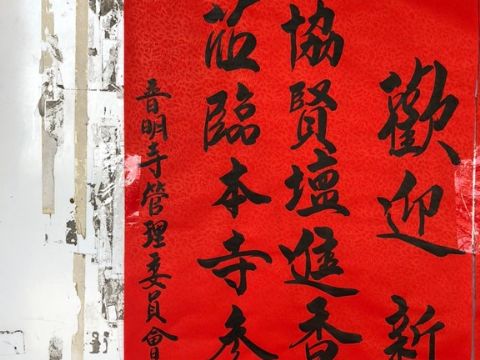 歡迎新
協賢壇進香
蒞臨本寺參
普明寺管理委員會